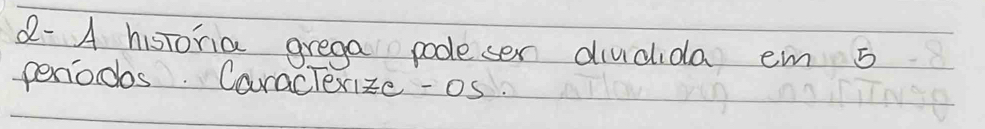 2- A história grega pode ser dividida em 5
períodos. Caracterize-os.